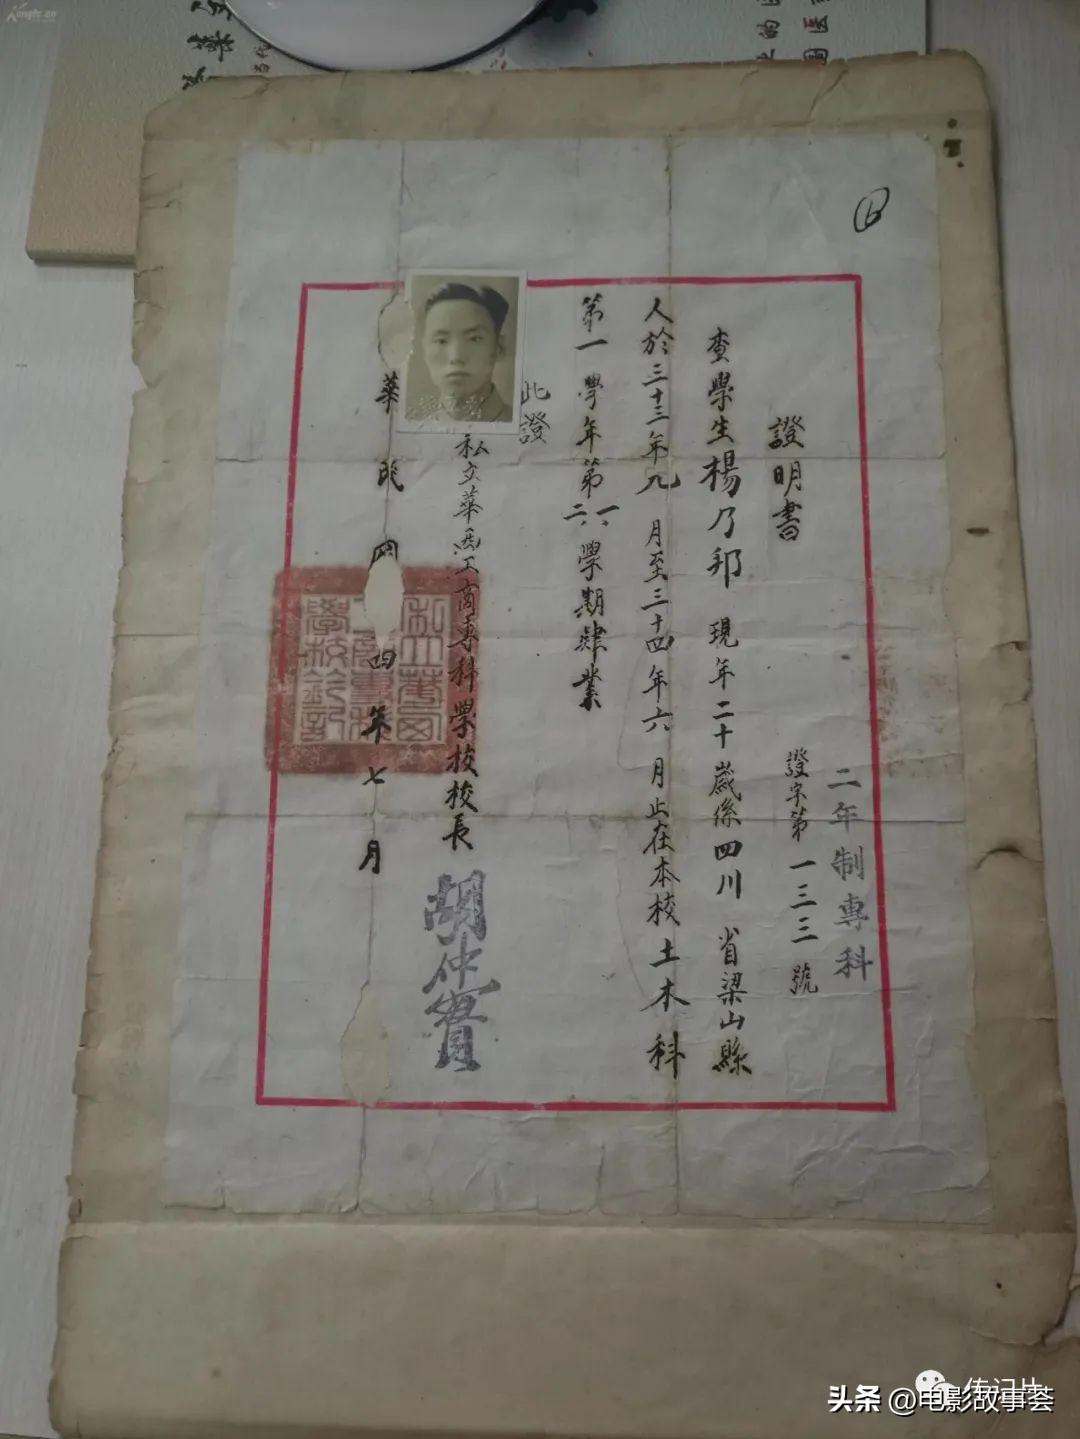 二年制專科
證字第一三三號
證明書
查學生楊乃邦現年二十歲係四川省梁山縣
人於三十三年九月至三十四年六月止在本校土木科
第一學年第一二學期肄業
此證
私立華西工商專科學校校長胡仲實
華民國
四年七月
头条 @电影故事荟
传记片